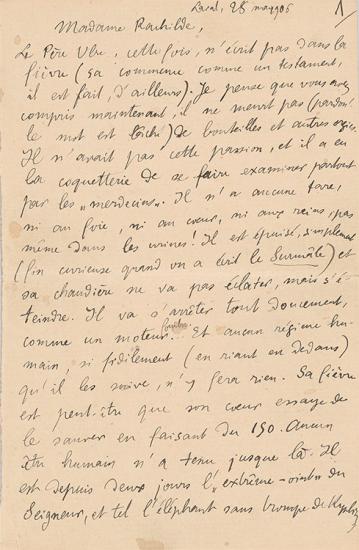 Laval, 28 mai 906
1
Madame Rachilde,
Le Père Ubu, cette fois, n'écrit pas dans la
fièvre (ça commence comme un testament,
il est fait, d'ailleurs). Je pense que vous avez
compris maintenant, il ne meurt pas (pardon!
le mot est lâché) de bouteilles et autres orgies.
Il n'avait pas cette passion, et il a eu
la coquetterie de se faire examiner partout
par les "merdecins". Il n'a aucune tare,
ni au foie, ni au cœur, ni aux reins, pas
même dans les urines! Il est épuisé, simplement
(fin curieuse quand on a écrit le Surmâle) et
sa chaudière ne va pas éclater, mais s'é-
teindre. Il va s'arrêter tout doucement,
comme un moteur fourbu. Et aucun régime hu-
main, si fidèlement (en riant en dedans)
qu'il les suive, n'y fera rien. Sa fièvre
est peut-être que son cœur essaye de
le sauver en faisant du 150. Aucun
être humain n'a tenu jusque là. Il
est depuis deux jours l'"extrême-oint" du
Seigneur, et tel l'éléphant sans trompe de Kipling